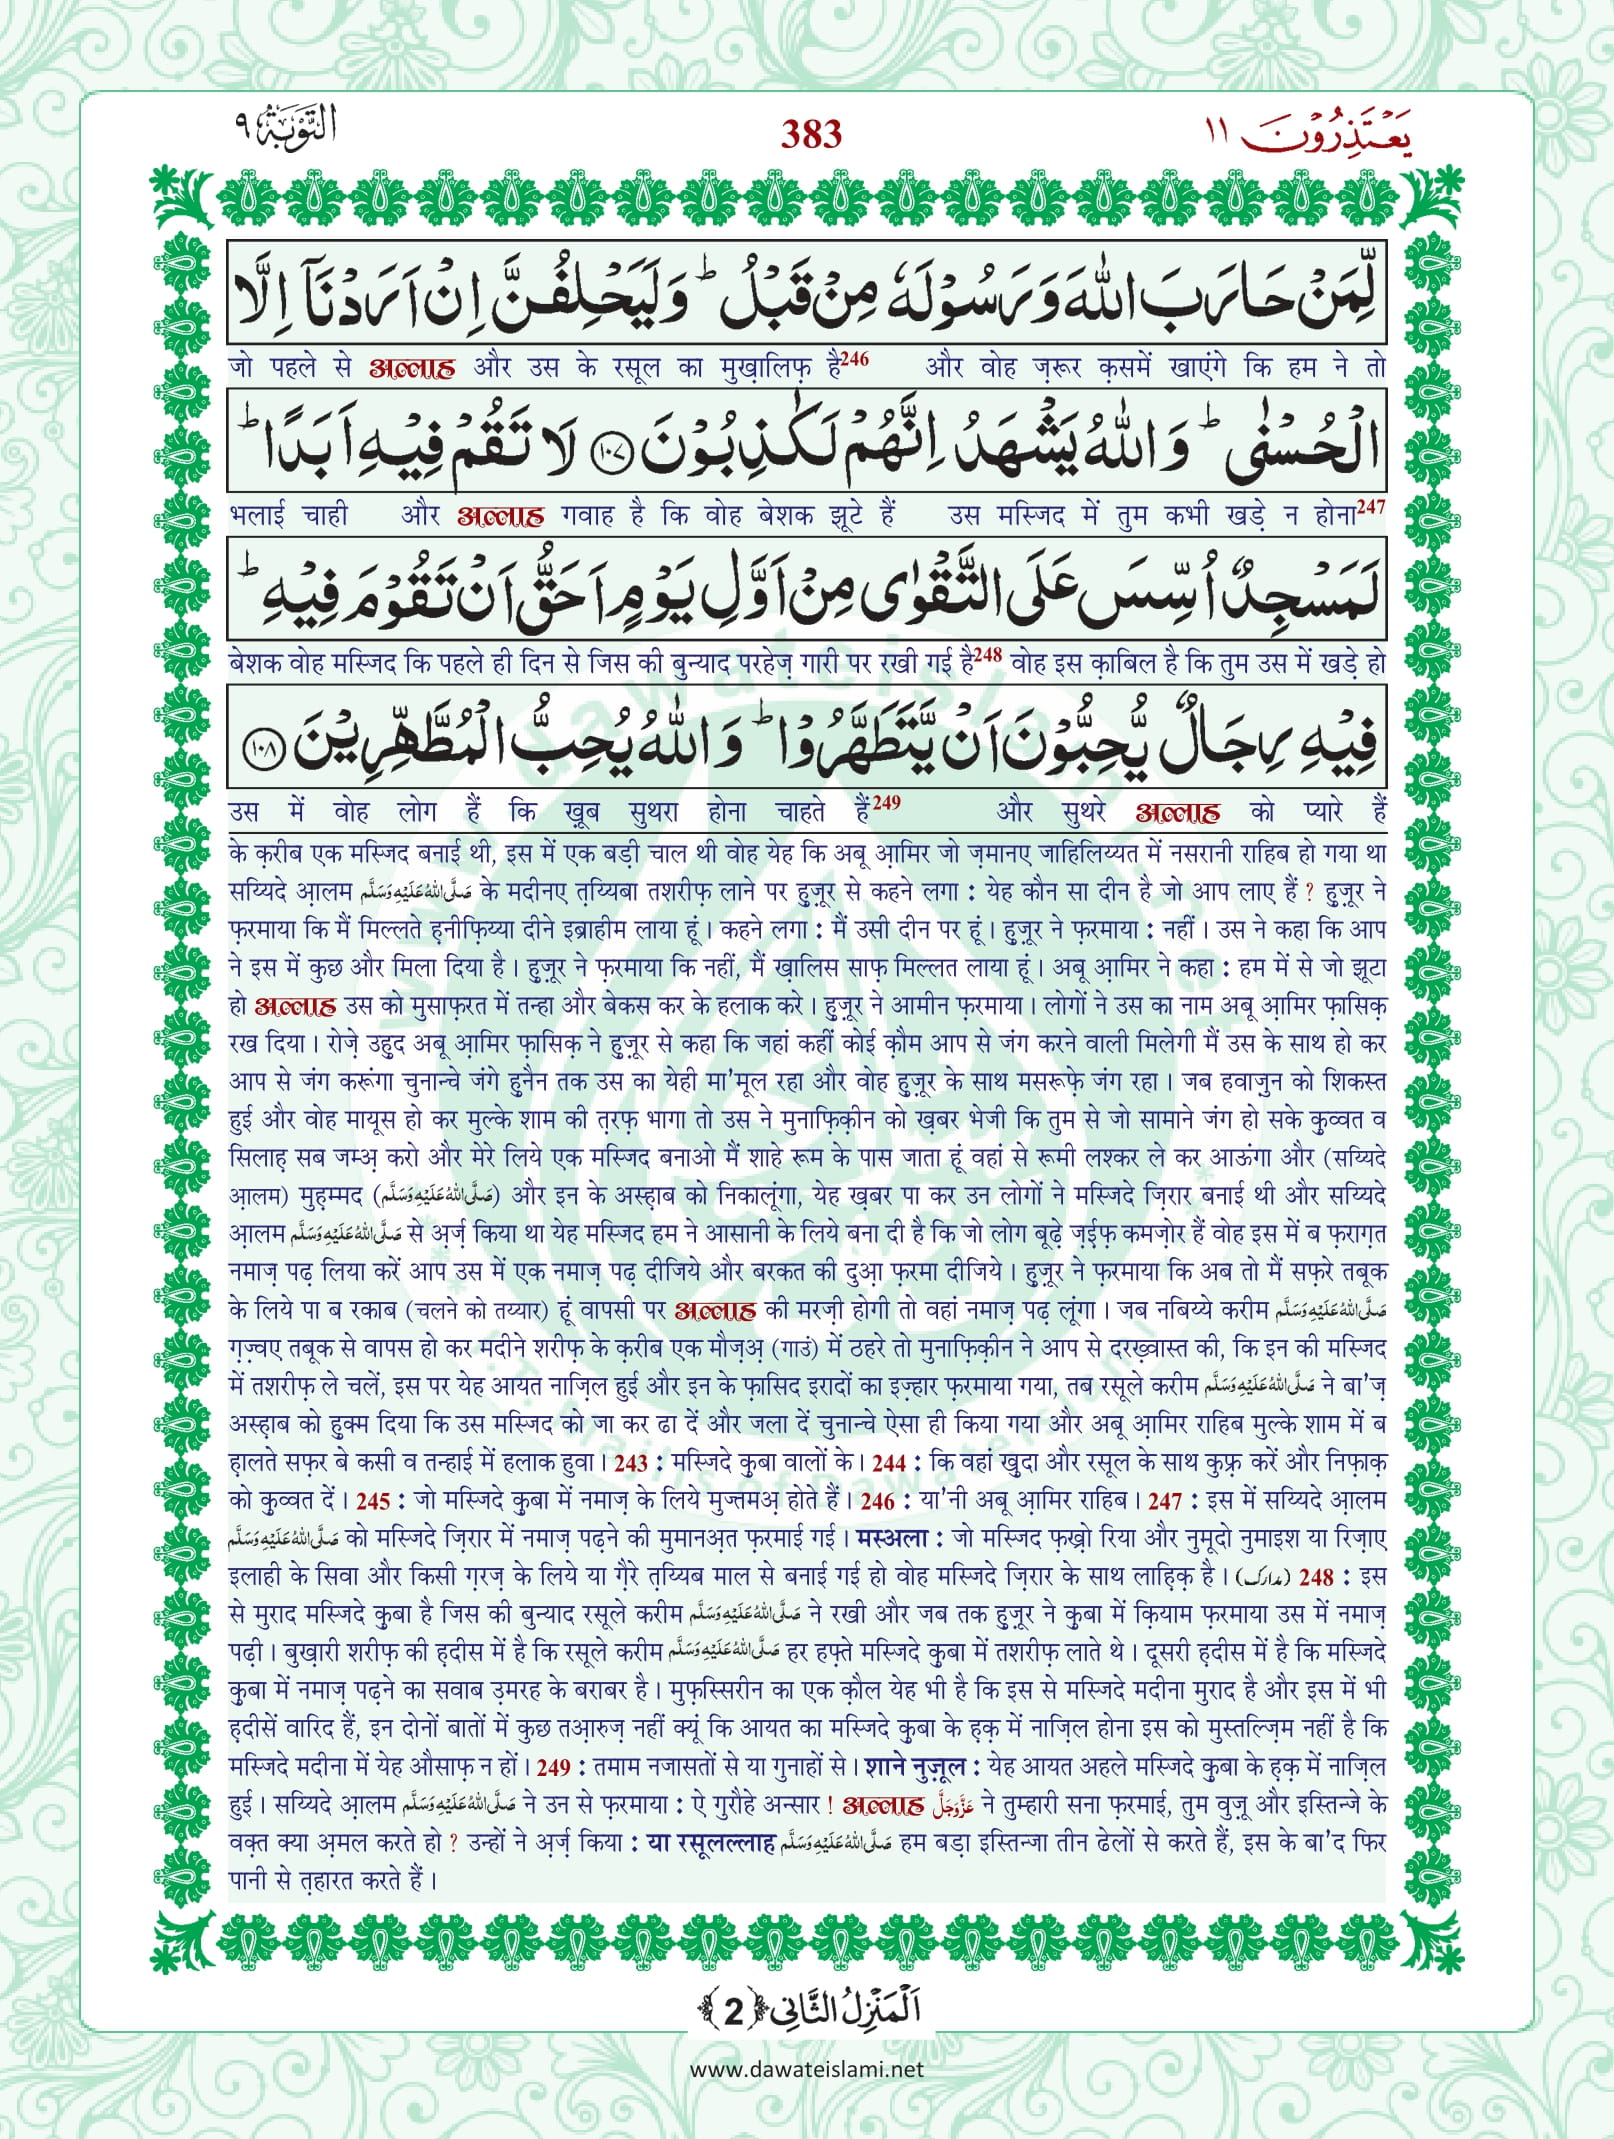 التوبة ٩
383
يعتذرون ١١
لِّمَنْ حَارَبَ اللّٰهَ وَرَسُوْلَهٗ مِنْ قَبْلُ ؕ وَلَيَحْلِفُنَّ اِنْ اَرَدْنَاۤ اِلَّا
जो पहले से अल्लाह और उस के रसूल का मुख़ालिफ़ है246 और वोह ज़रूर क़समें खाएंगे कि हम ने तो
الْحُسْنٰى ؕ وَاللّٰهُ يَشْهَدُ اِنَّهُمْ لَكٰذِبُوْنَ ﴿۱۰۷﴾ لَا تَقُمْ فِيْهِ اَبَدًا ؕ
भलाई चाही और अल्लाह गवाह है कि वोह बेशक झूटे हैं उस मस्जिद में तुम कभी खड़े न होना247
لَمَسْجِدٌ اُسِّسَ عَلَى التَّقْوٰى مِنْ اَوَّلِ يَوْمٍ اَحَقُّ اَنْ تَقُوْمَ فِيْهِ ؕ
बेशक वोह मस्जिद कि पहले ही दिन से जिस की बुन्याद परहेज़ गारी पर रखी गई है248 वोह इस क़ाबिल है कि तुम उस में खड़े हो
فِيْهِ رِجَالٌ يُّحِبُّوْنَ اَنْ يَّتَطَهَّرُوْا ؕ وَاللّٰهُ يُحِبُّ الْمُطَّهِّرِيْنَ ﴿۱۰۸﴾
उस में वोह लोग हैं कि ख़ूब सुथरा होना चाहते हैं249 और सुथरे अल्लाह को प्यारे हैं
के क़रीब एक मस्जिद बनाई थी, इस में एक बड़ी चाल थी वोह येह कि अबू आ़मिर जो ज़मानए जाहिलिय्यत में नसरानी राहिब हो गया था
सय्यिदे आ़लम صَلَّى اللّٰهُ عَلَيْهِ وَسَلَّم के मदीनए त़य्यिबा तशरीफ़ लाने पर हुज़ूर से कहने लगा : येह कौन सा दीन है जो आप लाए हैं ? हुज़ूर ने
फ़रमाया कि मैं मिल्लते ह़नीफ़िय्या दीने इब्राहीम लाया हूं । कहने लगा : मैं उसी दीन पर हूं । हुज़ूर ने फ़रमाया : नहीं । उस ने कहा कि आप
ने इस में कुछ और मिला दिया है । हुज़ूर ने फ़रमाया कि नहीं, मैं ख़ालिस साफ़ मिल्लत लाया हूं । अबू आ़मिर ने कहा : हम में से जो झूटा
हो अल्लाह उस को मुसाफ़रत में तन्हा और बेकस कर के हलाक करे । हुज़ूर ने आमीन फ़रमाया । लोगों ने उस का नाम अबू आ़मिर फ़ासिक़
रख दिया । रोज़े उहुद अबू आ़मिर फ़ासिक़ ने हुज़ूर से कहा कि जहां कहीं कोई क़ौम आप से जंग करने वाली मिलेगी मैं उस के साथ हो कर
आप से जंग करूंगा चुनान्चे जंगे हुनैन तक उस का येही मा'मूल रहा और वोह हुज़ूर के साथ मसरूफ़े जंग रहा । जब हवाज़ुन को शिकस्त
हुई और वोह मायूस हो कर मुल्के शाम की त़रफ़ भागा तो उस ने मुनाफ़िक़ीन को ख़बर भेजी कि तुम से जो सामाने जंग हो सके क़ुव्वत व
सिलाह़ सब जम्अ़ करो और मेरे लिये एक मस्जिद बनाओ मैं शाहे रूम के पास जाता हूं वहां से रूमी लश्कर ले कर आऊंगा और (सय्यिदे
आ़लम) मुह़म्मद (صَلَّى اللّٰهُ عَلَيْهِ وَسَلَّم) और इन के अस्ह़ाब को निकालूंगा, येह ख़बर पा कर उन लोगों ने मस्जिदे ज़िरार बनाई थी और सय्यिदे
आ़लम صَلَّى اللّٰهُ عَلَيْهِ وَسَلَّم से अ़र्ज़ किया था येह मस्जिद हम ने आसानी के लिये बना दी है कि जो लोग बूढ़े ज़ई़फ़ कमज़ोर हैं वोह इस में ब फ़राग़त
नमाज़ पढ़ लिया करें आप उस में एक नमाज़ पढ़ दीजिये और बरकत की दुआ़ फ़रमा दीजिये । हुज़ूर ने फ़रमाया कि अब तो मैं सफ़रे तबूक
के लिये पा ब रकाब (चलने को तय्यार) हूं वापसी पर अल्लाह की मरज़ी होगी तो वहां नमाज़ पढ़ लूंगा । जब नबिय्ये करीम صَلَّى اللّٰهُ عَلَيْهِ وَسَلَّم
ग़ज़्वए तबूक से वापस हो कर मदीने शरीफ़ के क़रीब एक मौज़अ़ (गाउं) में ठहरे तो मुनाफ़िक़ीन ने आप से दरख़्वास्त की, कि इन की मस्जिद
में तशरीफ़ ले चलें, इस पर येह आयत नाज़िल हुई और इन के फ़ासिद इरादों का इज़्हार फ़रमाया गया, तब रसूले करीम صَلَّى اللّٰهُ عَلَيْهِ وَسَلَّم ने बा'ज़
अस्ह़ाब को हुक्म दिया कि उस मस्जिद को जा कर ढा दें और जला दें चुनान्चे ऐसा ही किया गया और अबू आ़मिर राहिब मुल्के शाम में ब
ह़ालते सफ़र बे कसी व तन्हाई में हलाक हुवा । 243 : मस्जिदे क़ुबा वालों के । 244 : कि वहां ख़ुदा और रसूल के साथ कुफ़्र करें और निफ़ाक़
को क़ुव्वत दें । 245 : जो मस्जिदे क़ुबा में नमाज़ के लिये मुज्तमअ़ होते हैं । 246 : या'नी अबू आ़मिर राहिब । 247 : इस में सय्यिदे आ़लम
صَلَّى اللّٰهُ عَلَيْهِ وَسَلَّم को मस्जिदे ज़िरार में नमाज़ पढ़ने की मुमानअ़त फ़रमाई गई । मस्अला : जो मस्जिद फ़ख़्रो रिया और नुमूदो नुमाइश या रिज़ाए
इलाही के सिवा और किसी ग़रज़ के लिये या ग़ैरे त़य्यिब माल से बनाई गई हो वोह मस्जिदे ज़िरार के साथ लाह़िक़ है । (مدارک) 248 : इस
से मुराद मस्जिदे क़ुबा है जिस की बुन्याद रसूले करीम صَلَّى اللّٰهُ عَلَيْهِ وَسَلَّم ने रखी और जब तक हुज़ूर ने क़ुबा में क़ियाम फ़रमाया उस में नमाज़
पढ़ी । बुख़ारी शरीफ़ की ह़दीस में है कि रसूले करीम صَلَّى اللّٰهُ عَلَيْهِ وَسَلَّم हर हफ़्ते मस्जिदे क़ुबा में तशरीफ़ लाते थे । दूसरी ह़दीस में है कि मस्जिदे
क़ुबा में नमाज़ पढ़ने का सवाब उ़मरह के बराबर है । मुफ़स्सिरीन का एक क़ौल येह भी है कि इस से मस्जिदे मदीना मुराद है और इस में भी
ह़दीसें वारिद हैं, इन दोनों बातों में कुछ तआ़रुज़ नहीं क्यूं कि आयत का मस्जिदे क़ुबा के ह़क़ में नाज़िल होना इस को मुस्तल्ज़िम नहीं है कि
मस्जिदे मदीना में येह औसाफ़ न हों । 249 : तमाम नजासतों से या गुनाहों से । शाने नुज़ूल : येह आयत अहले मस्जिदे क़ुबा के ह़क़ में नाज़िल
हुई । सय्यिदे आ़लम صَلَّى اللّٰهُ عَلَيْهِ وَسَلَّم ने उन से फ़रमाया : ऐ गुरौहे अन्सार ! अल्लाह عَزَّوَجَلَّ ने तुम्हारी सना फ़रमाई, तुम वुज़ू और इस्तिन्जे के
वक़्त क्या अ़मल करते हो ? उन्हों ने अ़र्ज़ किया : या रसूलल्लाह صَلَّى اللّٰهُ عَلَيْهِ وَسَلَّم हम बड़ा इस्तिन्जा तीन ढेलों से करते हैं, इस के बा'द फिर
पानी से त़हारत करते हैं ।
اَلْمَنْزِلُ الثَّانِی ﴿2﴾
www.dawateislami.net